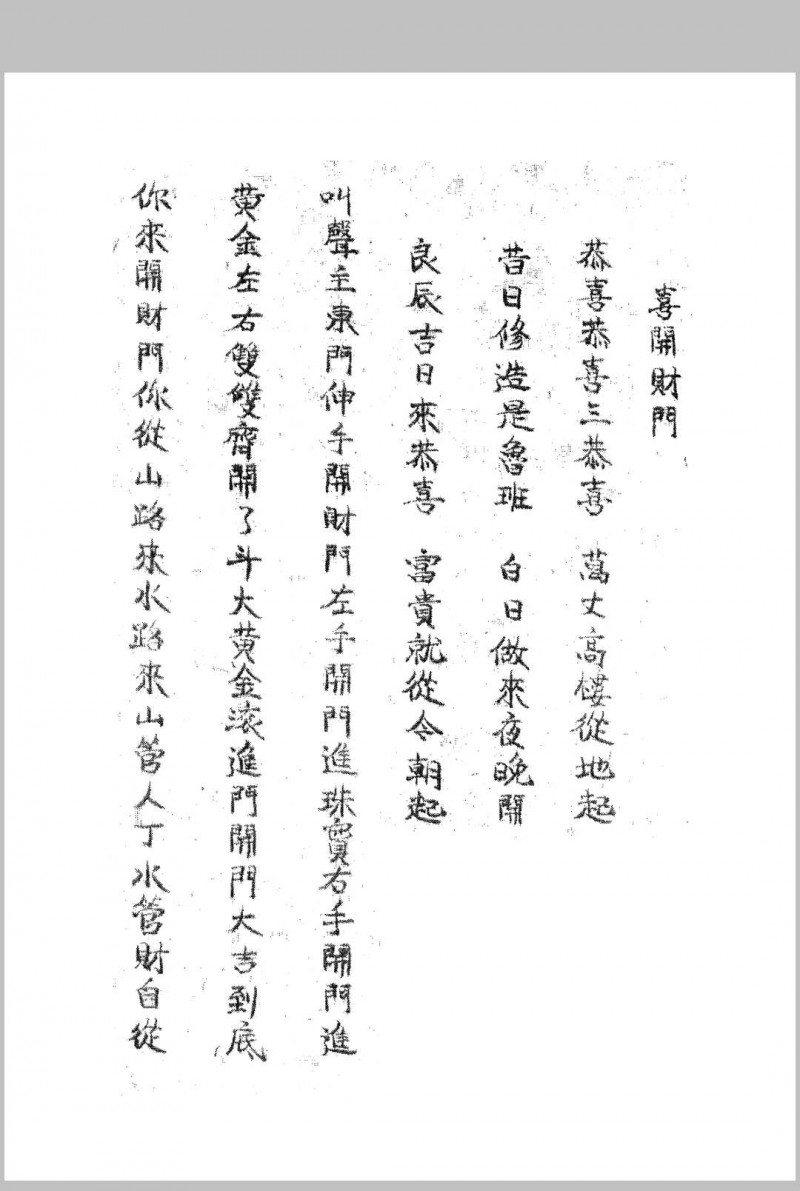 喜開財門
恭喜恭喜三恭喜 萬丈高樓從地起
昔日修造是魯班 白日做來夜晚開
良辰吉日來恭喜 富貴就從今朝起
叫聲主東門伸手開財門左手開門進珠寶右手開門進
黃金左右雙雙齊開了斗大黃金滾進門開門大吉到底
你來開財門你從山路來水路來山管人丁水管財自從